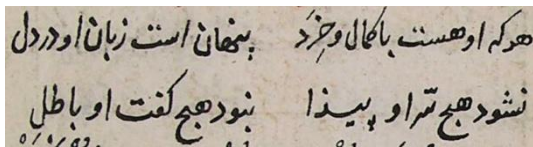 هرکه او هست با کمال و خرد پنهان است زبان او در دل
نشود هیچ سّر او پیدا نبود هیچ کفت او باطل